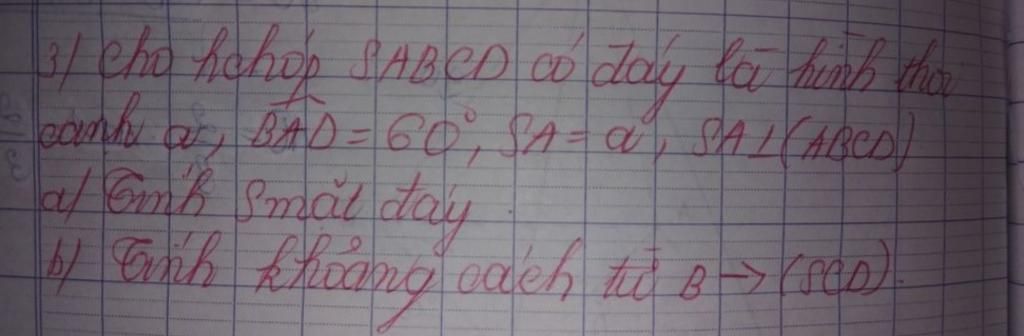 3/ Cho hchóp SABCD có đáy là hình thoi
cạnh a, BAD = 60°, SA = a, SA⊥(ABCD)
a/ Tính Smặt đáy.
b/ Tính khoảng cách từ B → (SCD).